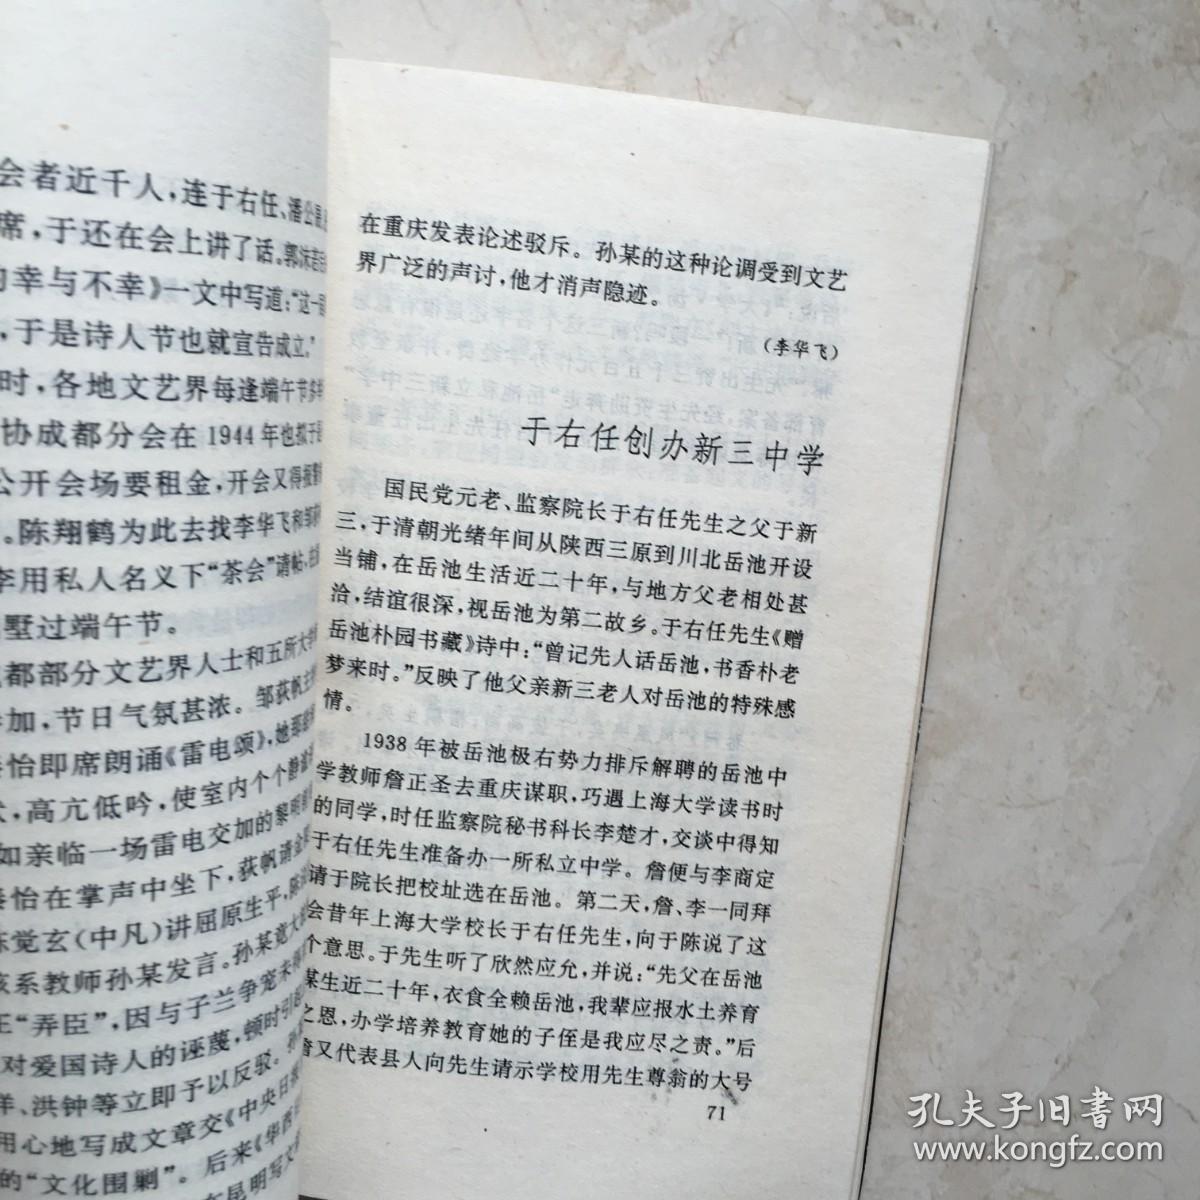 会者近千人，连于右任、潘公展
席，于还在会上讲了话。郭沫若
幸与不幸》一文中写道：“这一
，于是诗人节也就宣告成立。”
时，各地文艺界每逢端午节多
协成都分会在1944年也拟于
公开会场要租金，开会又得报
。陈翔鹤为此去找李华飞和邹
李用私人名义下“茶会”请帖，
墅过端午节。
都部分文艺界人士和五所大学
参加，节日气氛甚浓。邹荻帆
怡即席朗诵《雷电颂》，她那
，高亢低吟，使室内个个静
如亲临一场雷电交加的黎明
怡在掌声中坐下，荻帆诵
陈觉玄(中凡)讲屈原生平，陈
该系教师孙某发言。孙某竟大
王“弄臣”，因与子兰争宠未
对爱国诗人的诬蔑，顿时引起
洋、洪钟等立即予以反驳。
用心地写成文章交《中央日
的“文化围剿”。后来《华西
在昆明写文
在重庆发表论述驳斥。孙某的这种论调受到文艺
界广泛的声讨，他才消声隐迹。
(李华飞)
于右任创办新三中学
国民党元老、监察院长于右任先生之父于新
三，于清朝光绪年间从陕西三原到川北岳池开设
当铺，在岳池生活近二十年，与地方父老相处甚
洽，结谊很深，视岳池为第二故乡。于右任先生《赠
岳池朴园书藏》诗中：“曾记先人话岳池，书香朴老
梦来时。”反映了他父亲新三老人对岳池的特殊感
情。
1938年被岳池极右势力排斥解聘的岳池中
学教师詹正圣去重庆谋职，巧遇上海大学读书时
的同学，时任监察院秘书科长李楚才，交谈中得知
于右任先生准备办一所私立中学。詹便与李商定
请于院长把校址选在岳池。第二天，詹、李一同拜
会昔年上海大学校长于右任先生，向于陈说了这
个意思。于先生听了欣然应允，并说：“先父在岳池
谋生近二十年，衣食全赖岳池，我辈应报水土养育
之恩，办学培养教育她的子侄是我应尽之责。”后
詹又代表县人向先生请示学校用先生尊翁的大号
71
孔夫子旧书网
www.kongfz.com